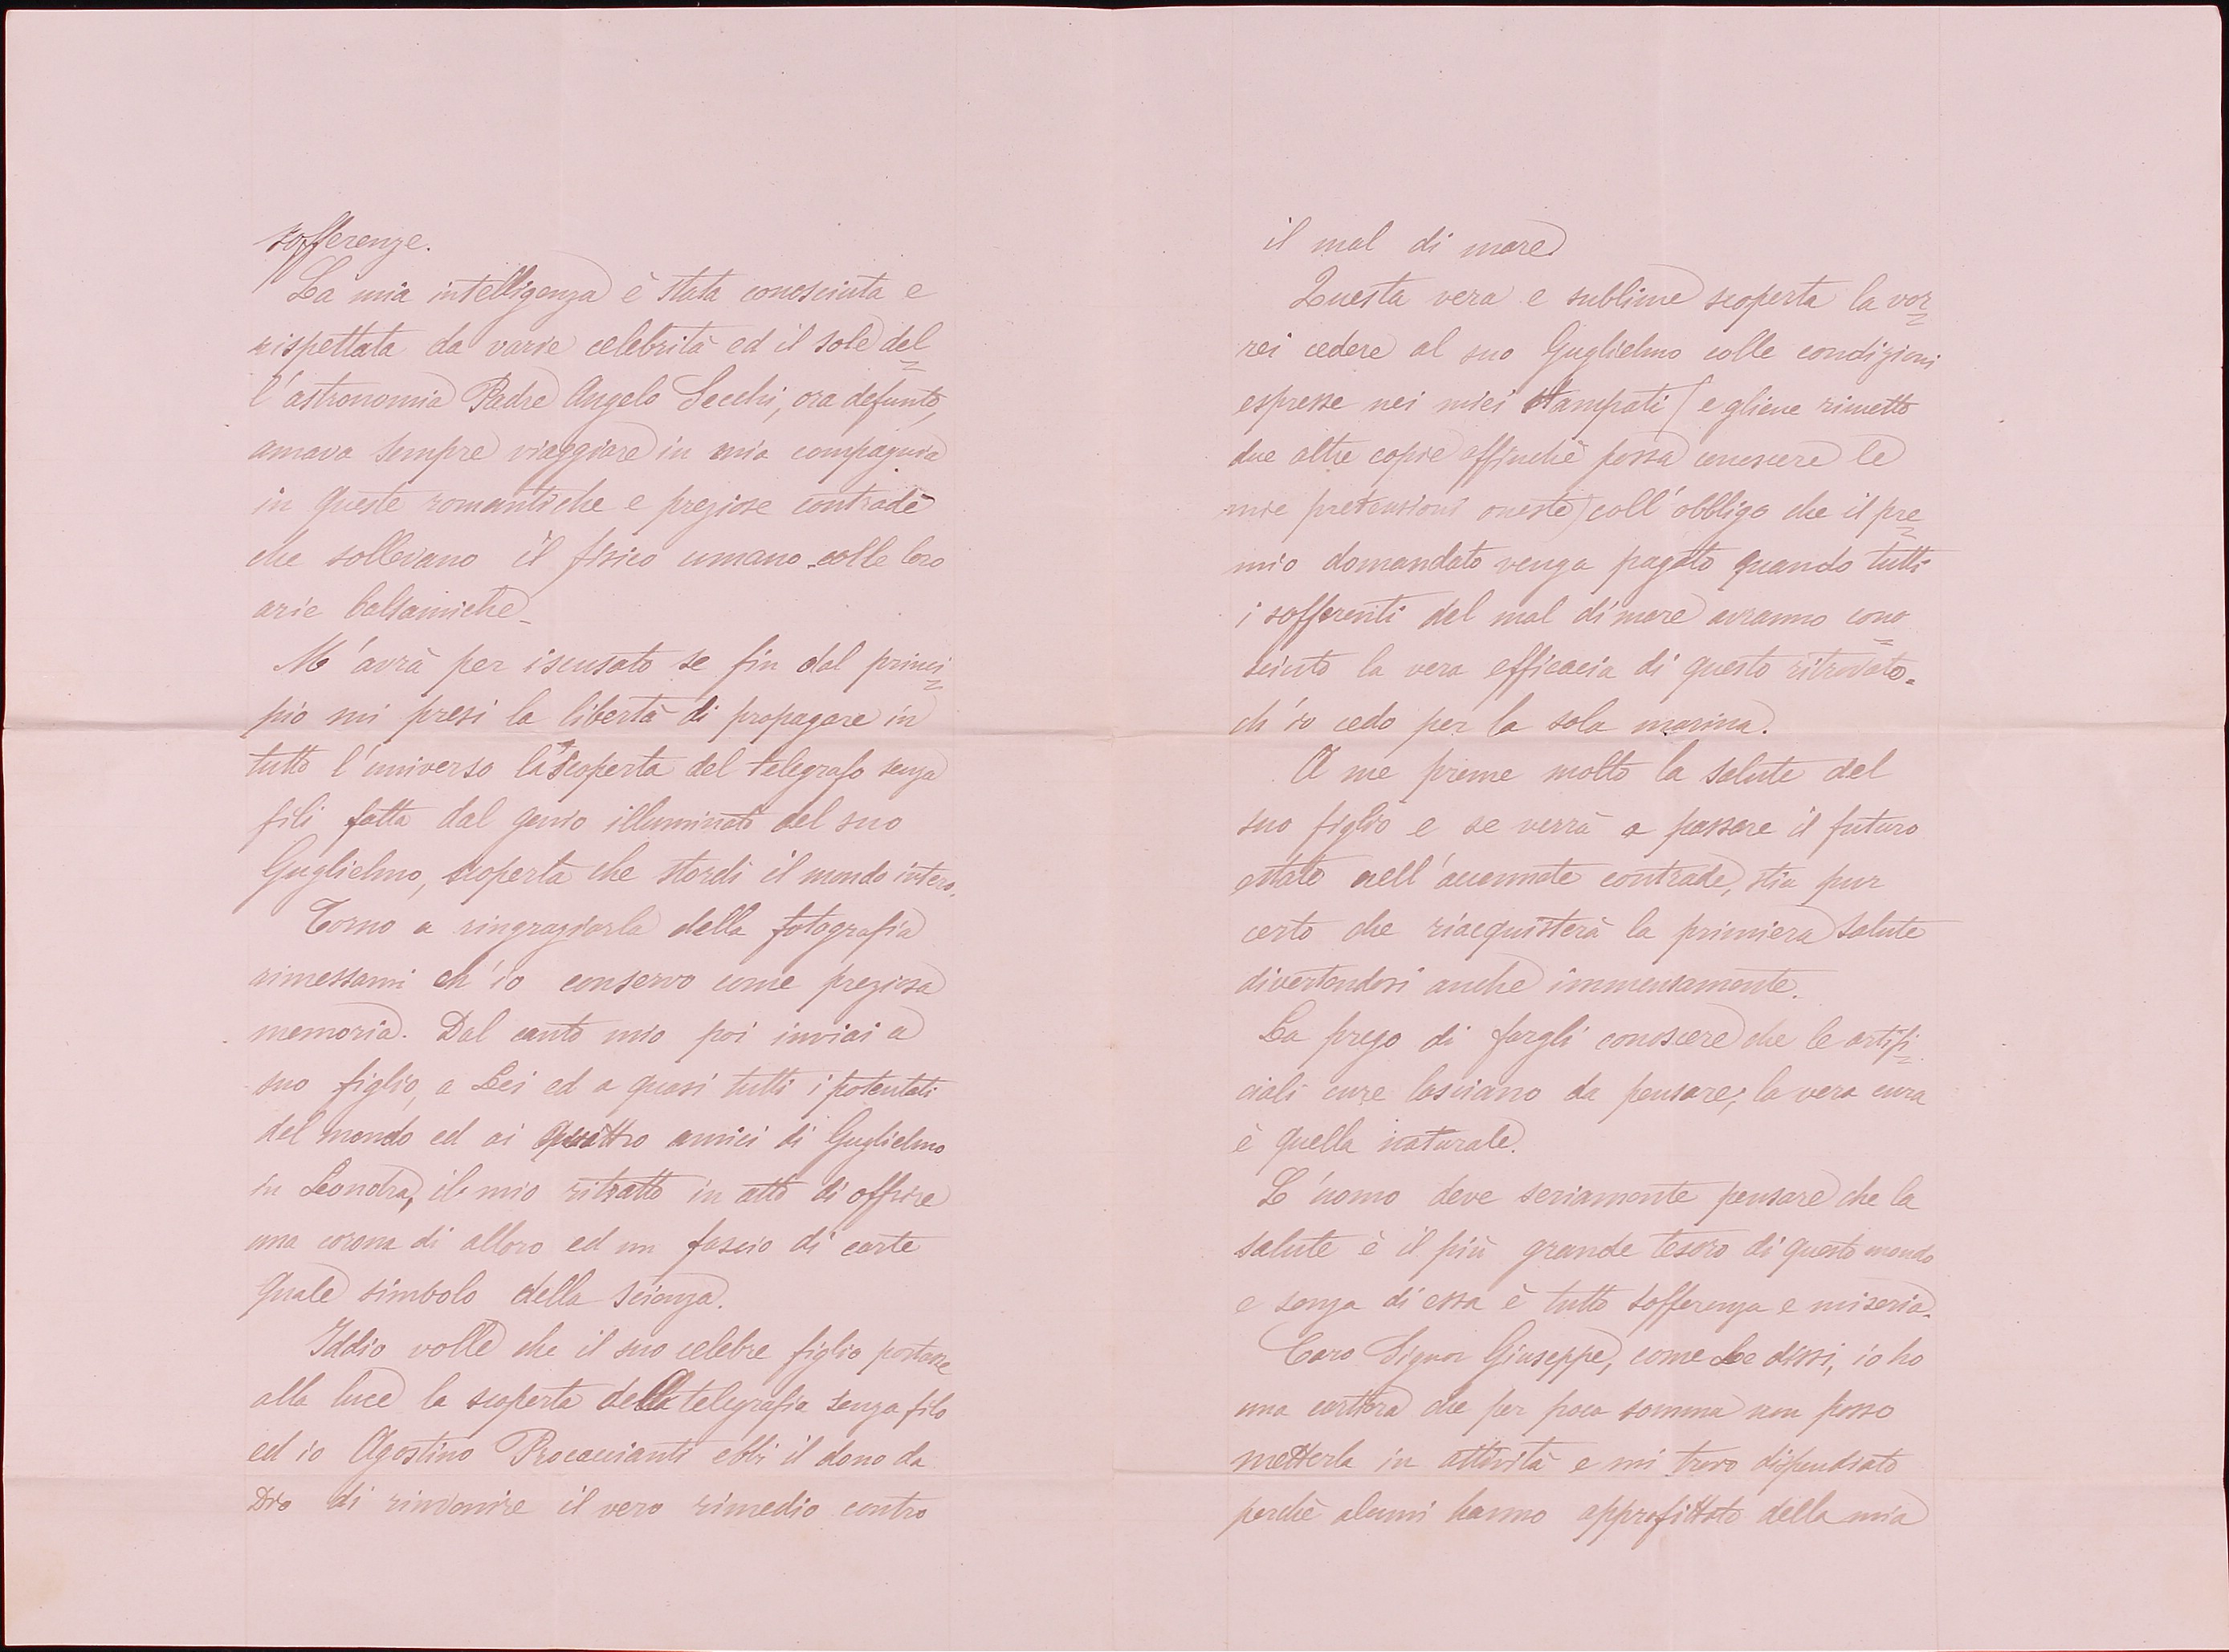 sofferenze.
La mia intelligenza è stata conosciuta e
rispettata da varie celebrità ed il sole del=
l'astronomia Padre Angelo Secchi, ora defunto,
amava sempre viaggiare in mia compagnia
in queste romantiche e preziose contrade
che sollevano il fisico umano colle loro
arie balsamiche.
M'avrà per iscusato se fin dal princi=
pio mi presi la libertà di propagare in
tutto l'universo la scoperta del telegrafo senza
fili fatta dal genio illuminato del suo
Guglielmo, scoperta che stordì il mondo intero.
Torno a ringraziarla della fotografia
rimessami ch'io conservo come preziosa
memoria. Dal canto mio poi inviai a
suo figlio, a Lei ed a quasi tutti i potentati
del mondo ed ai quattro amici di Guglielmo
in Londra, il mio ritratto in atto di offrire
una corona di alloro ed un fascio di carte
quale simbolo della scienza.
Iddio volle che il suo celebre figlio portasse
alla luce la scoperta della telegrafia senza filo
ed io Agostino Procaccianti ebbi il dono da
Dio di rinvenire il vero rimedio contro
il mal di mare.
Questa vera e sublime scoperta la vor=
rei cedere al suo Guglielmo colle condizioni
espresse nei miei stampati (e gliene rimetto
due altre copie affinchè possa conoscere le
mie pretensioni oneste) coll'obbligo che il pre=
mio domandato venga pagato quando tutti
i sofferenti del mal di mare avranno cono=
sciuto la vera efficacia di questo ritrovato
ch'io cedo per la sola marina.
A me preme molto la salute del
suo figlio e se verrà a passare il futuro
estate nell'accennate contrade, stia pur
certo che riacquisterà la primiera salute
divertendosi anche immensamente.
La prego di fargli conoscere che le artifi=
ciali cure lasciano da pensare; la vera cura
è quella naturale.
L'uomo deve seriamente pensare che la
salute è il più grande tesoro di questo mondo
e senza di essa è tutto sofferenza e miseria.
Caro Signor Giuseppe, come Le dissi, io ho
una cartiera che per poca somma non posso
metterla in attività e mi trovo dispendiato
perchè alcuni hanno approfittato della mia